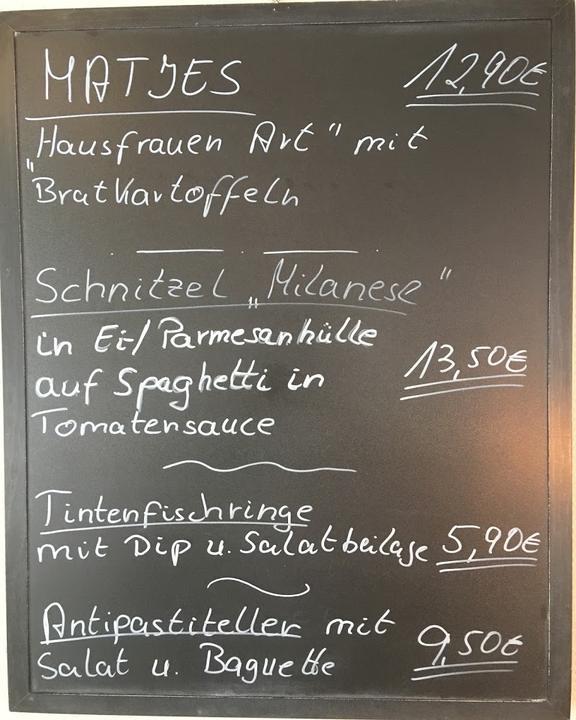 MATJES 12,90€
„Hausfrauen Art" mit
Bratkartoffeln
Schnitzel „Milanese"
in Ei-/Parmesanhülle
auf Spaghetti in 13,50€
Tomatensauce
Tintenfischringe
mit Dip u. Salatbeilage 5,90€
Antipastiteller mit
Salat u. Baguette 9,50€